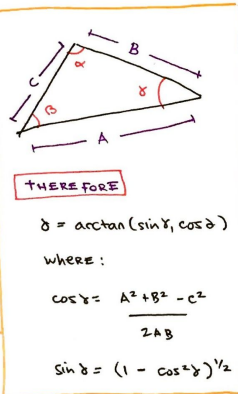 B
α
C
γ
β
A
THEREFORE
γ = arctan(sinγ, cosγ)
where:
cosγ = A² + B² - C²
2AB
sinγ = (1 - cos²γ)^1/2